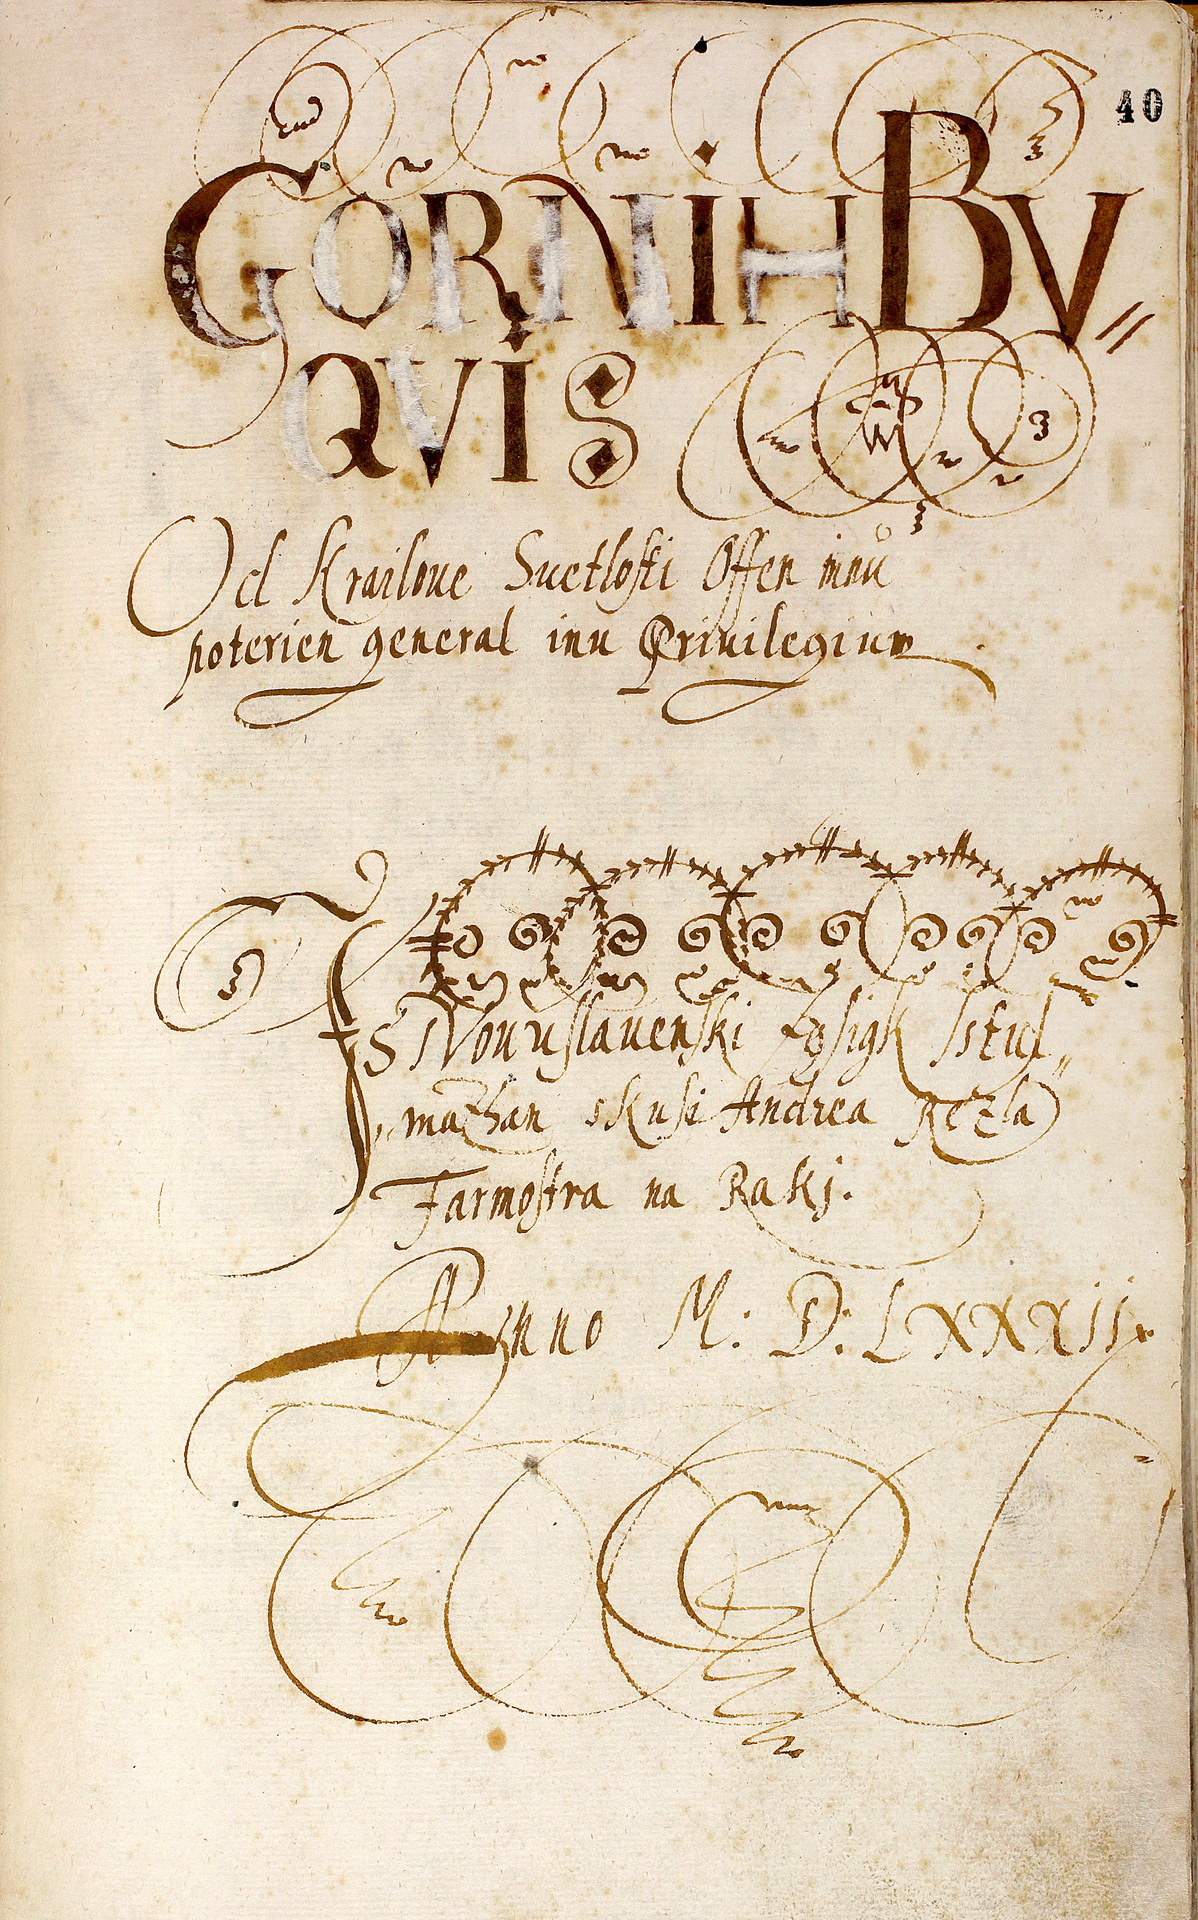 40
GORNIH BV//
QVIS
Od Krajloue Suetlosti Offen innu
poterien general inu Priuilegium.
IS Nouuslauenski Jesigk istul„
„mazhan skusi Andrea Rezla
Farmostra na Rakj.
Anno M: D: LXXXII.